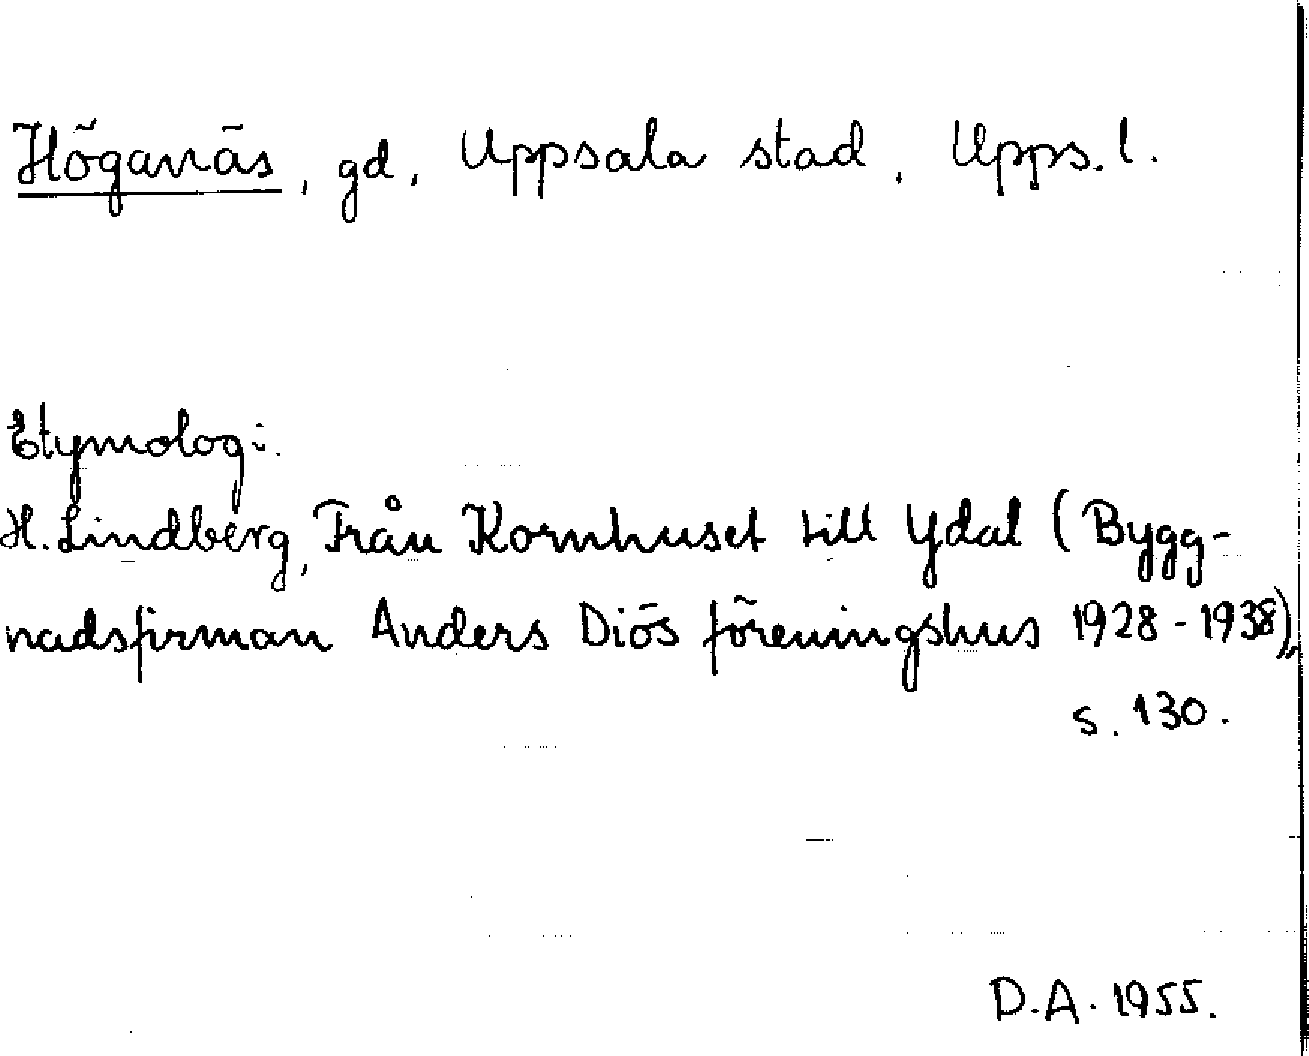 Höganäs, gd, Uppsala stad, Upps. l.
Etymologi:
H. Lindberg, Från Kornhuset till Ydal (Bygg-
nadsfirman Anders Diös föreningshus 1928-1938),
s. 130.
D.A. 1955.